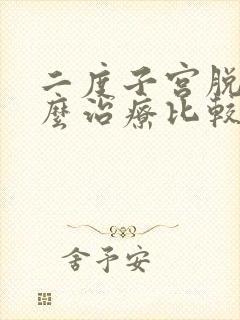 二度子宫脱
麽治療比較
舍予安